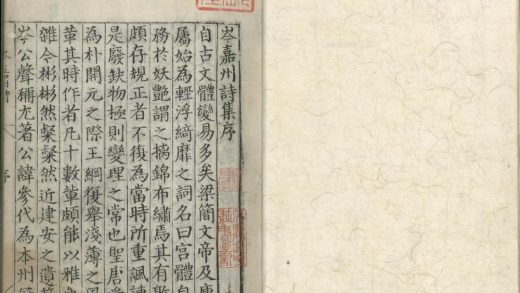 岑嘉州詩集序
自古文體變易多矣梁簡文帝及庾
屬始為輕浮綺靡之詞名曰宮體自
務於妖艶謂之摛錦布繡焉其有敦
頗存規正者不復為當時所重諷諫
是廢缺物極則變理之常也聖唐受
為朴開元之際王綱復舉淺薄之風
華其時作者凢十數軰頗能以雅
雜今彬彬然粲粲然近建安之遺
岑公聲稱尤著公諱參代為本州冠